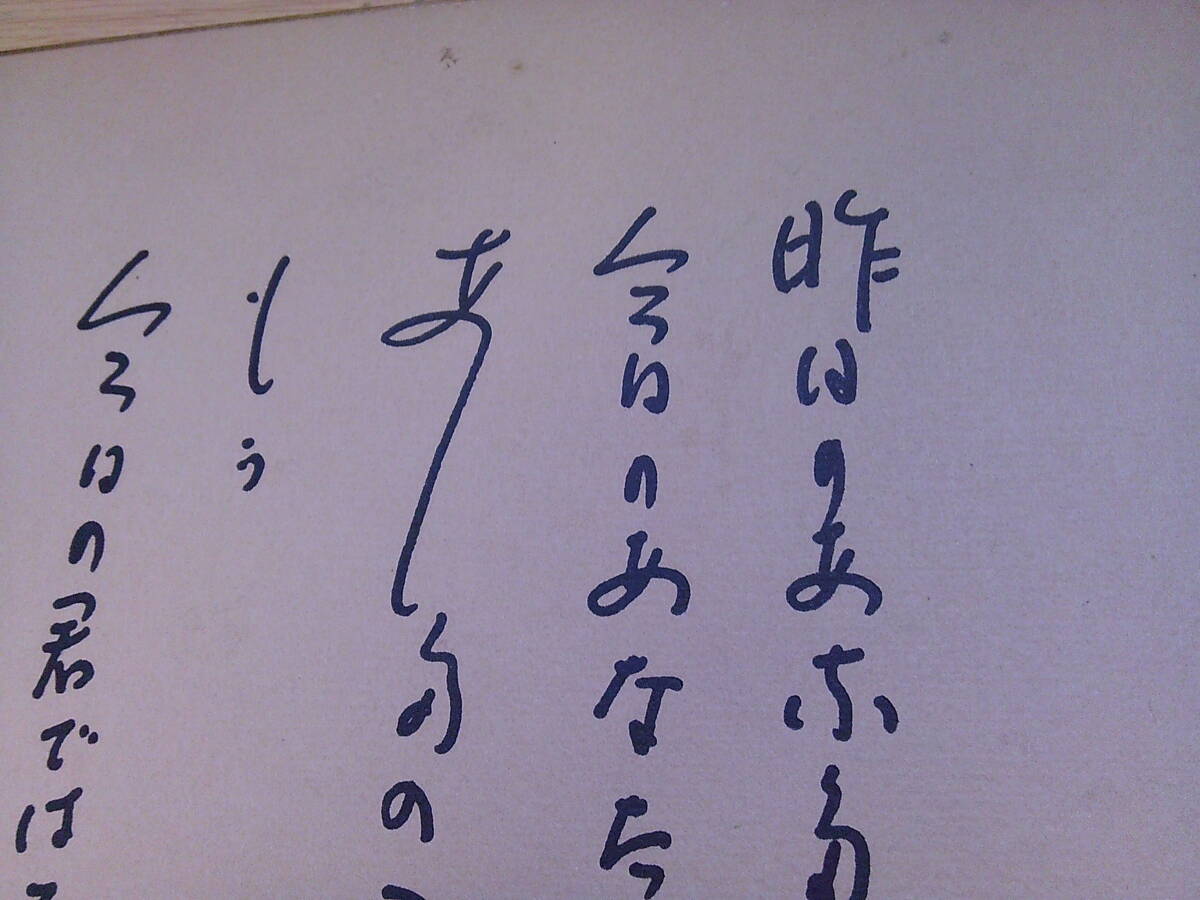 昨日のあなた
今日のあなた
あしたの
もう
今日の君では